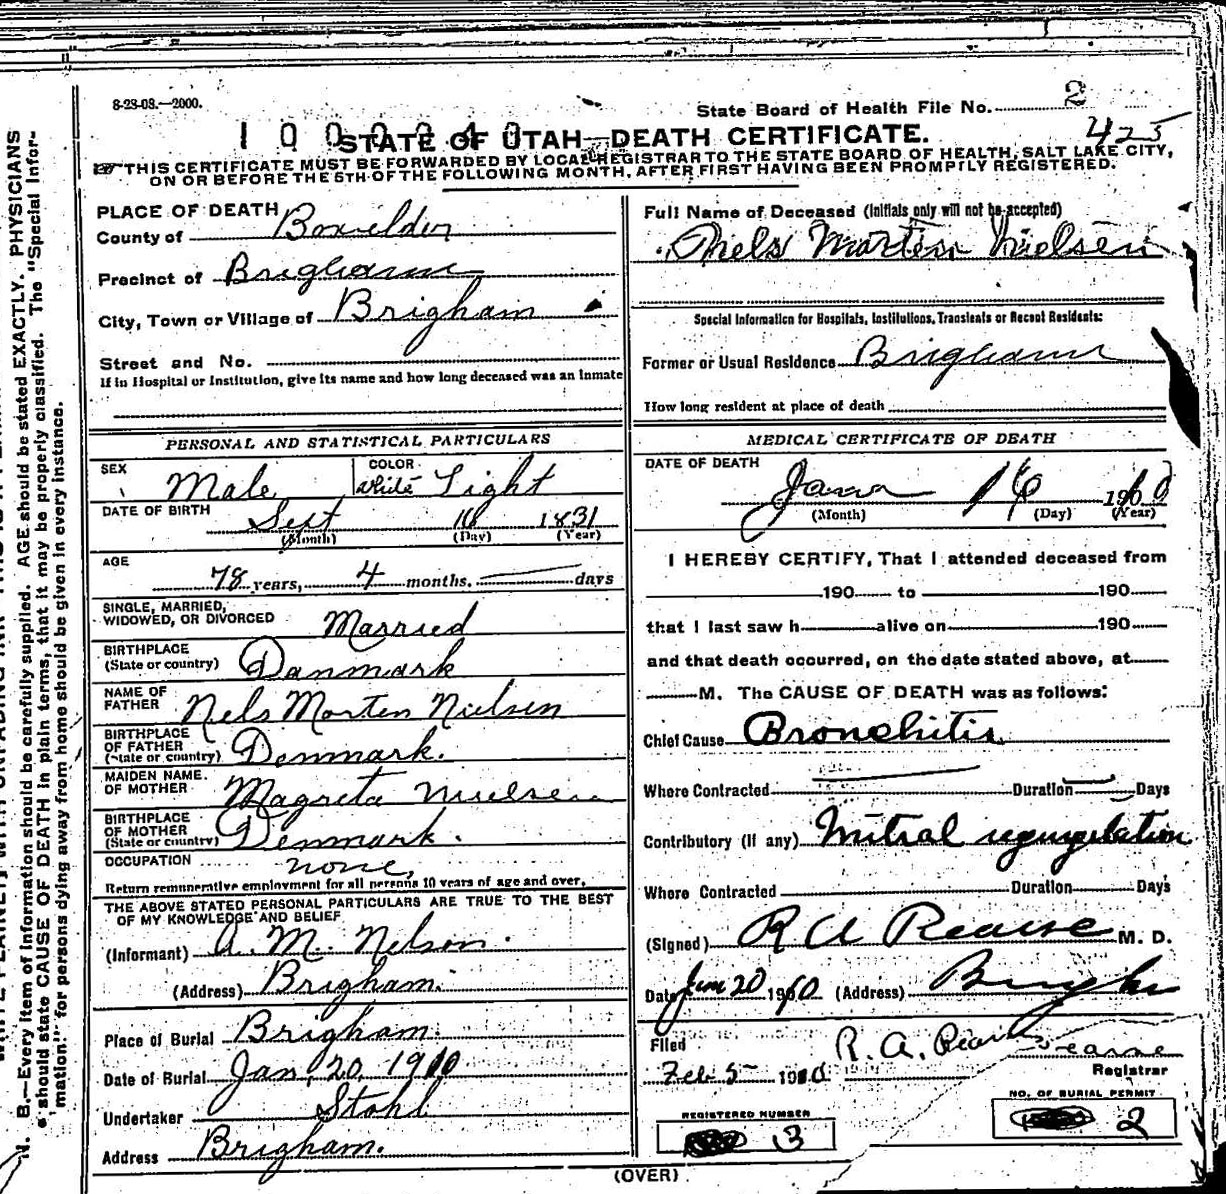 8-28-08.—2000.
State Board of Health File No. 2
STATE OF UTAH—DEATH CERTIFICATE.
425
THIS CERTIFICATE MUST BE FORWARDED BY LOCAL REGISTRAR TO THE STATE BOARD OF HEALTH, SALT LAKE CITY,
ON OR BEFORE THE 5TH OF THE FOLLOWING MONTH, AFTER FIRST HAVING BEEN PROMPTLY REGISTERED.
PLACE OF DEATH
County of Boxelder
Precinct of Brigham
City, Town or Village of Brigham
Street and No.
If in Hospital or Institution, give its name and how long deceased was an inmate
PERSONAL AND STATISTICAL PARTICULARS
SEX Male
COLOR White Light
DATE OF BIRTH Sept 16 1831
(Month) (Day) (Year)
AGE 78 years, 4 months. days
SINGLE, MARRIED,
WIDOWED, OR DIVORCED Married
BIRTHPLACE
(State or country) Danmark
NAME OF
FATHER Nels Morten Nielsen
BIRTHPLACE
OF FATHER
(State or country) Denmark.
MAIDEN NAME.
OF MOTHER Magreta Nielsen
BIRTHPLACE
OF MOTHER
(State or country) Denmark.
OCCUPATION none,
Return remunerative employment for all persons 10 years of age and over,
THE ABOVE STATED PERSONAL PARTICULARS ARE TRUE TO THE BEST
OF MY KNOWLEDGE AND BELIEF
(Informant) A. M. Nelson.
(Address) Brigham.
Place of Burial Brigham.
Date of Burial Jan, 20, 1910
Undertaker Stohl
Address Brigham.
Full Name of Deceased (Initials only will not be accepted)
Niels Morten Nielsen
Special Information for Hospitals, Institutions, Transients or Recent Residents:
Former or Usual Residence Brigham
How long resident at place of death
MEDICAL CERTIFICATE OF DEATH
DATE OF DEATH
Jan 16 1910
(Month) (Day) (Year)
I HEREBY CERTIFY, That I attended deceased from
190 to 190
that I last saw h alive on 190
and that death occurred, on the date stated above, at
M. The CAUSE OF DEATH was as follows:
Chief Cause Bronchitis
Where Contracted Duration Days
Contributory (if any) Mitral regurgitation
Where Contracted Duration Days
(Signed) R A Pearse M. D.
Date Jan 20 1910 (Address) Brigham
Filed R. A. Pearse
Feb 5 1910 Registrar
REGISTERED NUMBER
3
NO. OF BURIAL PERMIT
2
(OVER)
N. B.—Every item of information should be carefully supplied. AGE should be stated EXACTLY. PHYSICIANS
should state CAUSE OF DEATH in plain terms, that it may be properly classified. The "Special Infor-
mation" for persons dying away from home should be given in every instance.